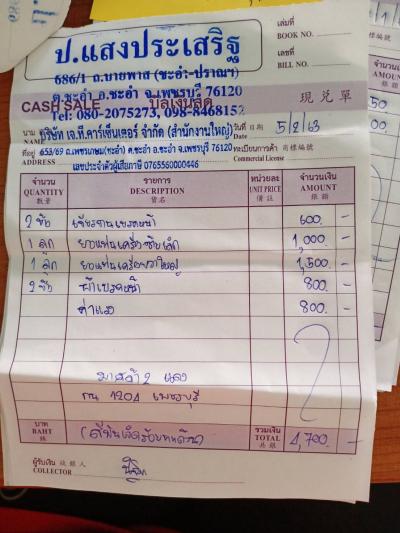 ป.แสงประเสริฐ
686/1 ถ.บายพาส (ชะอำ-ปราณฯ)
ต.ชะอำ อ.ชะอำ จ.เพชรบุรี 76120
Tel: 080-2075273, 098-8468152
เล่มที่
BOOK NO.
เลขที่
BILL NO.
CASH SALE บิลเงินสด 現兌單
นาม NAME บริษัท เจ.ที.คาร์เซ็นเตอร์ จำกัด (สำนักงานใหญ่) วันที่ 日期 5/2/63
ที่อยู่ ADDRESS 653/69 ถ.เพชรเกษม(ชะอำ) ต.ชะอำ อ.ชะอำ จ.เพชรบุรี 76120 ทะเบียนการค้า 商標編號 Commercial License
เลขประจำตัวผู้เสียภาษี 0765560000446
จำนวน QUANTITY 數量 รายการ DESCRIPTION 貨名 หน่วยละ UNIT PRICE 備註 จำนวนเงิน AMOUNT 銀錢
2 ข้าง เจียรจานเบรคหน้า 600 -
1 ลูก ยางแท่นเครื่อง 1,000 -
1 ลูก ยางแท่นเครื่องขวาใหญ่ 1,500 -
2 ข้าง ผ้าเบรคหน้า 800 -
ค่าแรง 800 -
มาสด้า 2 แดง
กน 1204 เพชรบุรี
บาท BAHT 銖 (สี่พันเจ็ดร้อยบาทถ้วน) รวมเงิน TOTAL 共銀 4,700 -
ผู้รับเงิน 收銀人
COLLECTOR